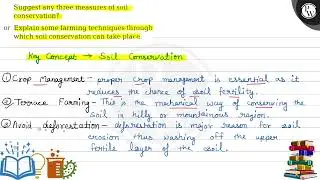 Suggest any three measures of soil
conservation?
or Explain some farming techniques through
which soil conservation can take place
Key Concept → Soil Conservation
① Crop Management - proper crop management is essential as it
reduces the chance of soil fertility.
② Terrace Farming - This is the mechanical way of conserving the
soil in hilly or mountainous region.
③ Avoid deforestation - deforestation is major reason for soil
erosion thus washing off the upper
fertile layer of the soil.